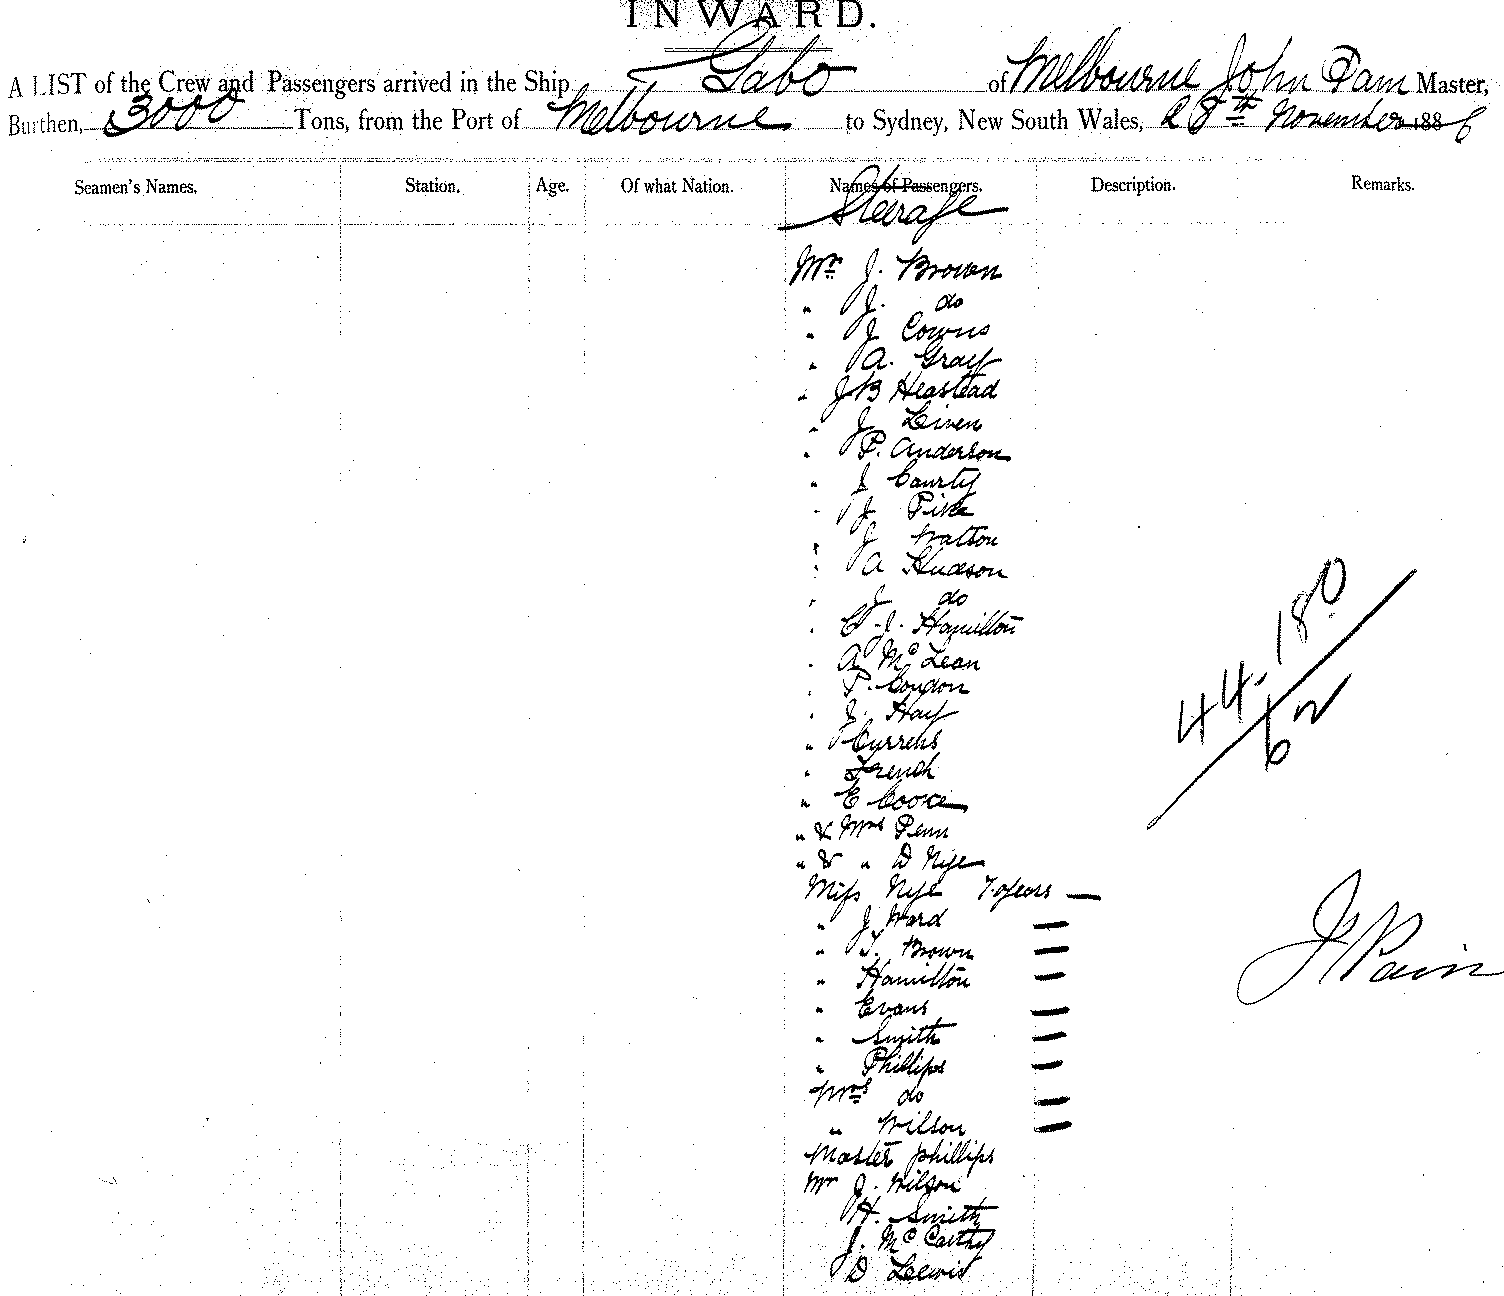 INWARD.
A LIST of the Crew and Passengers arrived in the Ship Gabo of Melbourne John Pain Master,
Burthen, 3000 Tons, from the Port of Melbourne to Sydney, New South Wales, 28th November 1886
Seamen's Names. Station. Age. Of what Nation. Names of Passengers. Description. Remarks.
Steerage
Mr J. Brown
" J. do
" J Cowns
" A. Gray
" J B Heastead
" J Liven
" P. Anderson
" J Courty
" J Pike
" J Watson
" A Hudson
" J do
" C. J. Hamilton
" A McLean
" P. Condon
" J. Hay
" Currens
" French
" E Cooke
" & Mrs Penn
" & " D Nye
Miss Nye 7 years —
" J Ward —
" T. Brown —
" Hamilton —
" Evans —
" Smith —
" Phillips —
Mrs do —
" Wilson —
Master Phillips
Mr J. Wilson
H. Smith
J. McCarthy
D Lewis
44. 180
62
J Pain